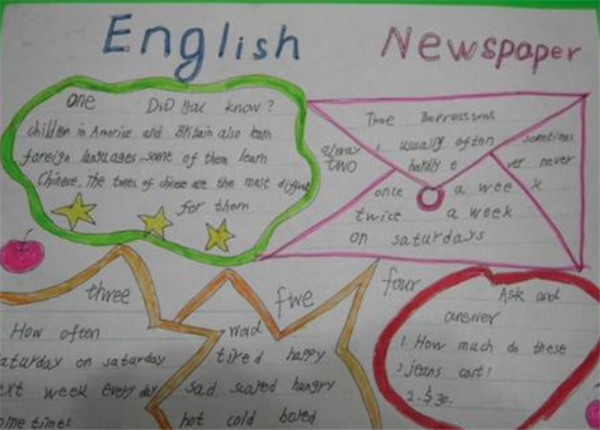 English Newspaper
one DiD you know?
children in America and Britain also learn
foreign languages. some of them learn
Chinese. The tones of chinese are the most difficult
for them
Time Expressions
always usually often sometimes
TWO hardly e ver never
once a wee k
twice a week
on saturdays
three
How often
aturday on saturday
ext week every day
ome times
five
word
tired happy
sad scared hungry
hot cold bored
four Ask and
answer
1. How much do these
jeans cost?
2. $30.